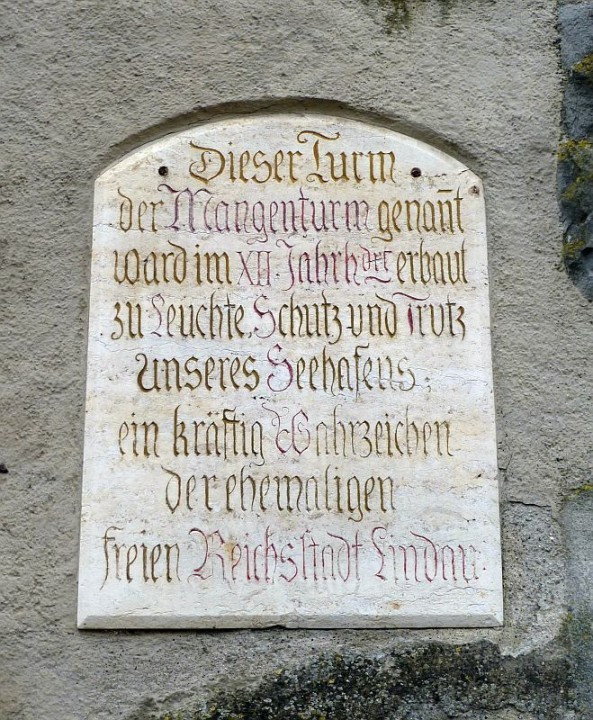 Dieser Turm
der Mangenturm genan̄t
ward im XII. Jahrhdrt erbaut
zu Leuchte, Schutz und Trutz
unseres Seehafens,
ein kräftig Wahrzeichen
der ehemaligen
freien Reichsstadt Lindau.